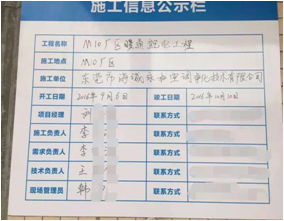 施工信息公示栏
工程名称 M10厂区暖通配电工程
施工地点 M10厂区
施工单位 东莞市海诚永和空调净化技术有限公司
开工日期 2016年9月6日 竣工日期 2016年10月10日
项目经理 刘 联系方式
施工负责人 李 联系方式
需求负责人 李 联系方式
技术负责人 王 联系方式
现场管理员 韩 联系方式